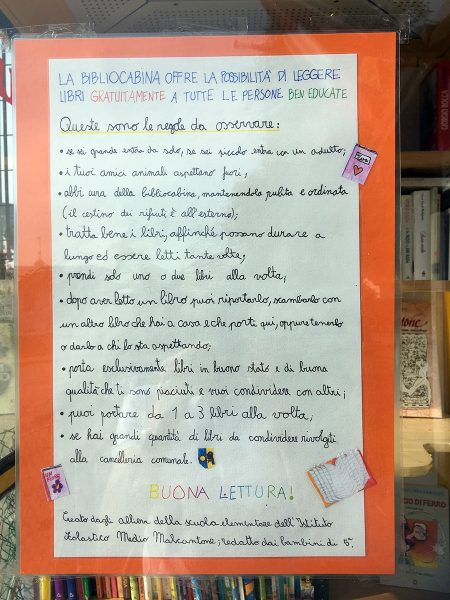 LA BIBLIOCABINA OFFRE LA POSSIBILITÀ DI LEGGERE
LIBRI GRATUITAMENTE A TUTTE LE PERSONE BEN EDUCATE
Queste sono le regole da osservare:
• se sei grande entra da solo, se sei piccolo entra con un adulto;
• i tuoi amici animali aspettano fuori;
• abbi cura della bibliocabina, mantenendola pulita e ordinata
(il cestino dei rifiuti è all'esterno);
• tratta bene i libri, affinché possano durare a
lungo ed essere letti tante volte;
• prendi solo uno o due libri alla volta;
• dopo aver letto un libro puoi riportarlo, scambiarlo con
un altro libro che hai a casa e che porti qui, oppure tenerlo
o darlo a chi lo sta aspettando;
• porta esclusivamente libri in buono stato e di buona
qualità che ti sono piaciuti e vuoi condividere con altri;
• puoi portare da 1 a 3 libri alla volta;
• se hai grandi quantità di libri da condividere rivolgiti
alla cancelleria comunale.
BUONA LETTURA!
Creato dagli allievi della scuola elementare dell'Istituto
Scolastico Medio Malcantone; redatto dai bambini di 5ª.
DI FERRO